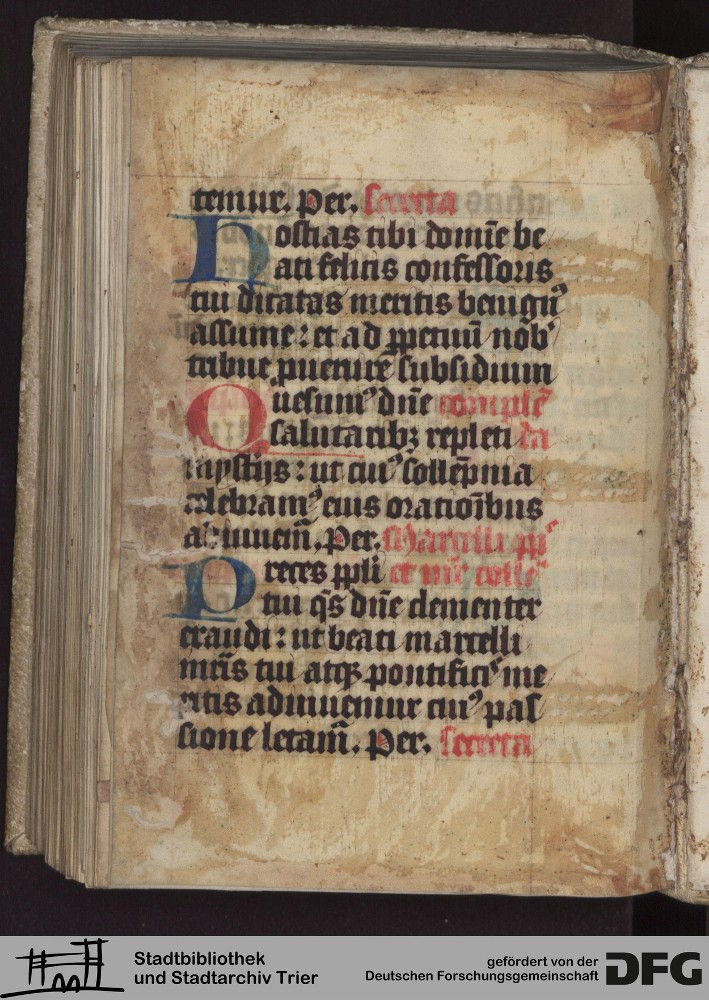 temur. Per. Secreta
Hostias tibi domīe be
ati felicis confessoris
tui dicatas meritis benignꝰ
assume: et ad ꝑpetuū nobꝰ
tribue puenire subsidium
Quesumꝰ dn̄e complēꝰ
salutaribꝫ repleti da
mysterijs: ut cuiꝰ sollēpnia
celebramꝰ eius oratioībus
adiuuem̄. Per. Marcelli pp̄
Preces ppli et mr̄e collē
tui qs̄ dn̄e clementer
exaudi: ut beati marcelli
mr̄is tui atqꝫ pontificiꝰ me
ritis adiuuemur cuiꝰ pas
sione letam̄. Per. Secreta
Stadtbibliothek
und Stadtarchiv Trier
gefördert von der
Deutschen Forschungsgemeinschaft DFG